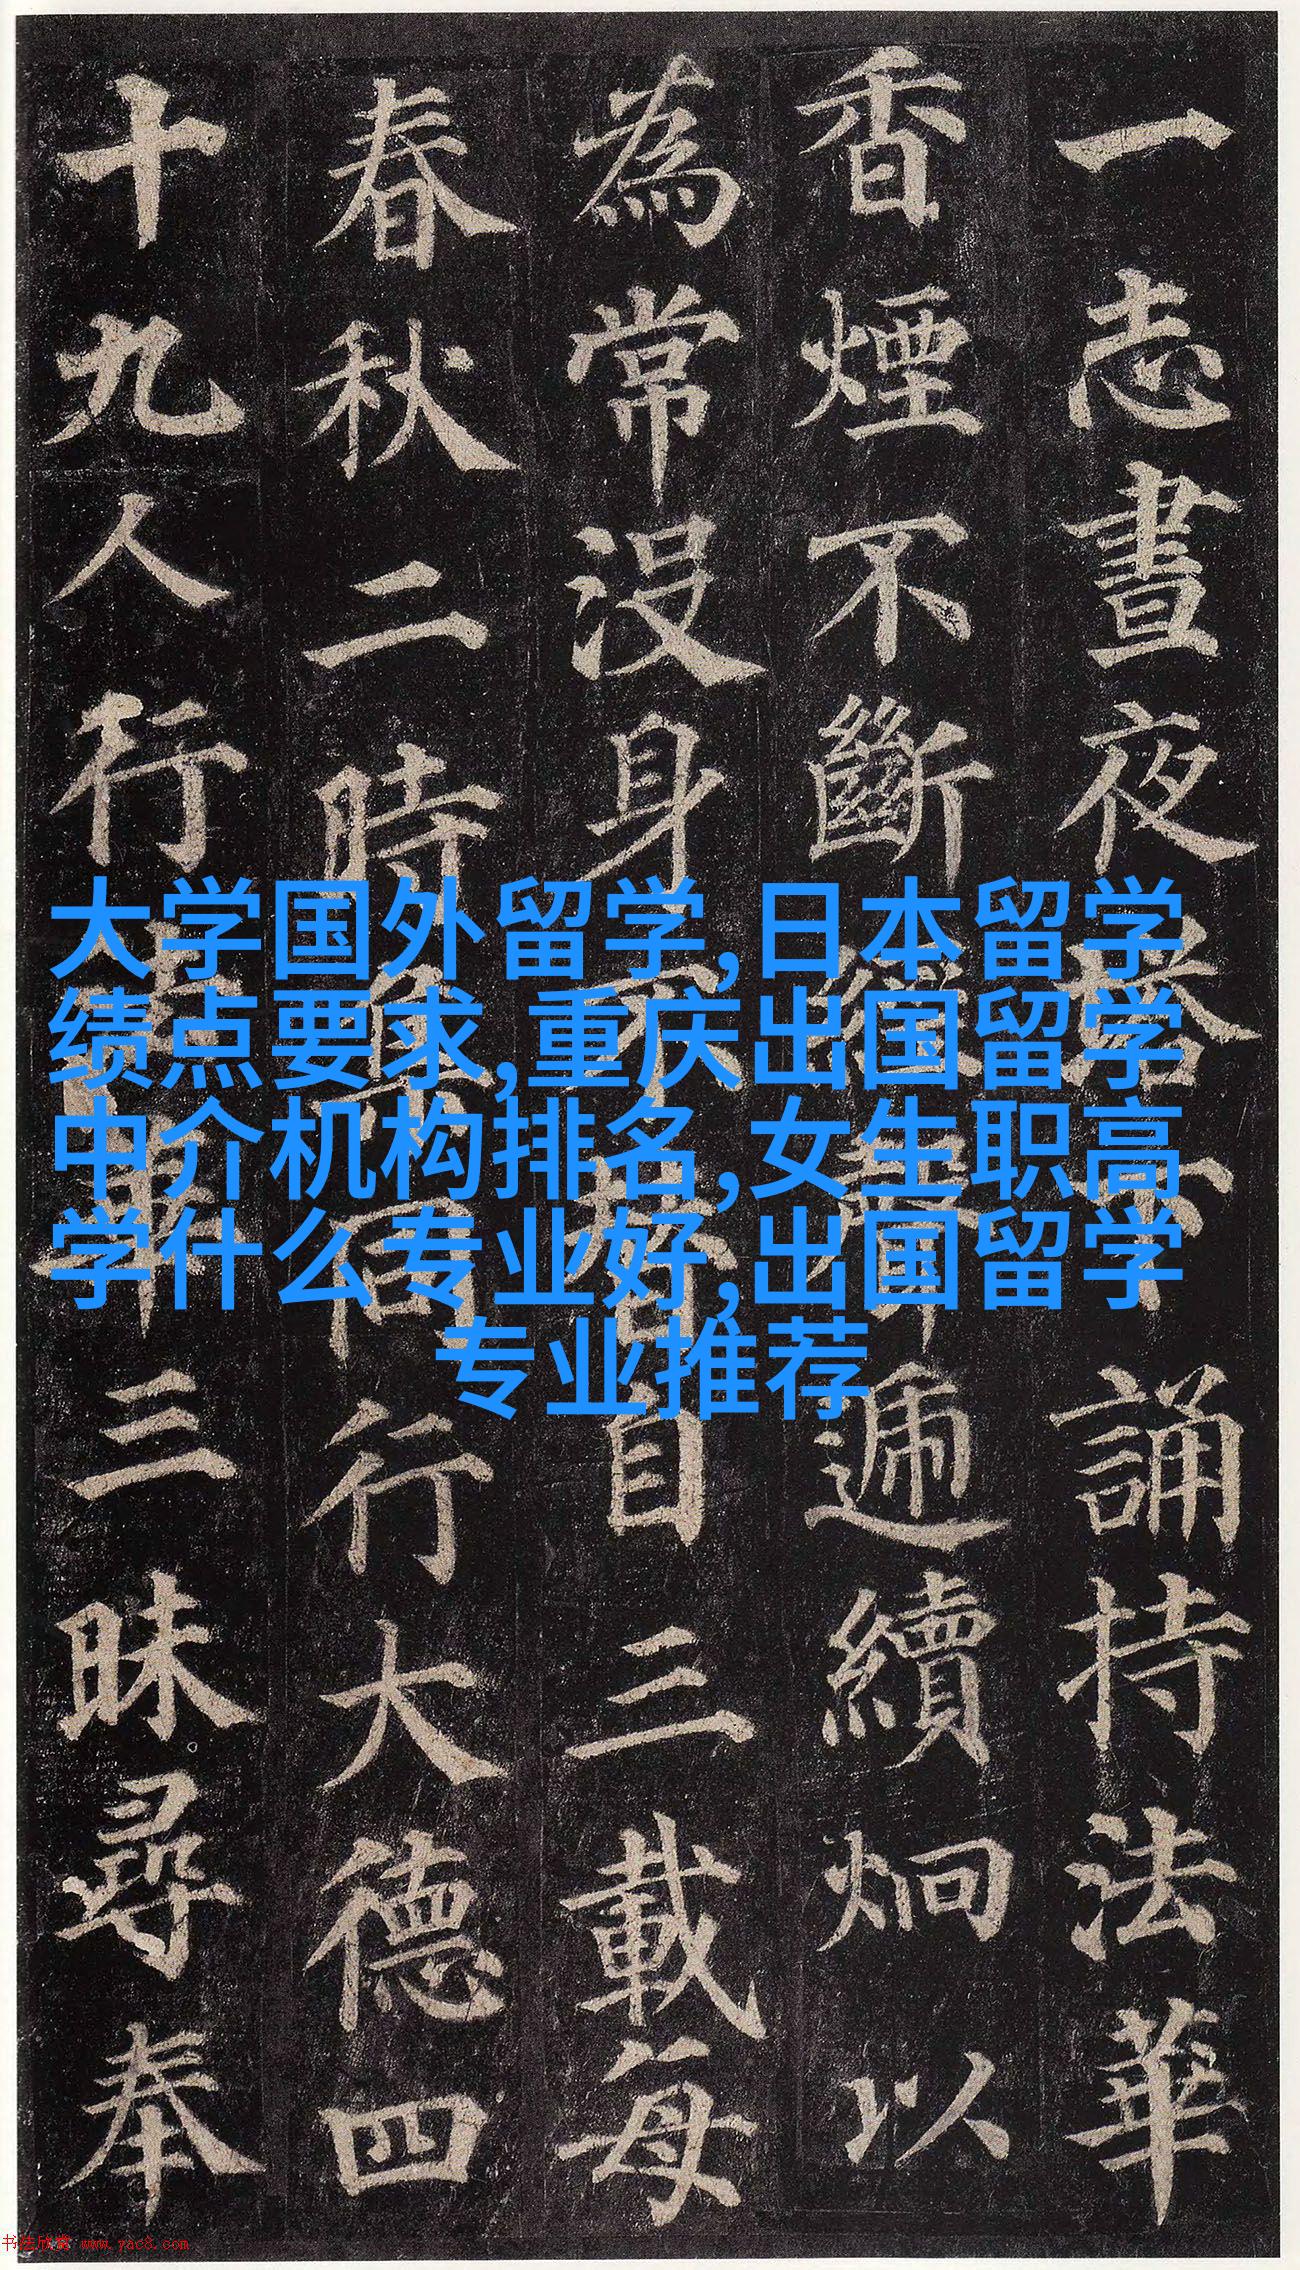 一志晝夜塔下誦持法華
香煙不斷經聲遞續炯以
為常沒身不替自三載每
春秋二時集同行大德四
十九人行法華三昧尋奉
大学国外留学,日本留学
绩点要求,重庆出国留学
中介机构排名,女生职高
学什么专业好,出国留学
专业推荐
书法欣赏 www.yac8.com